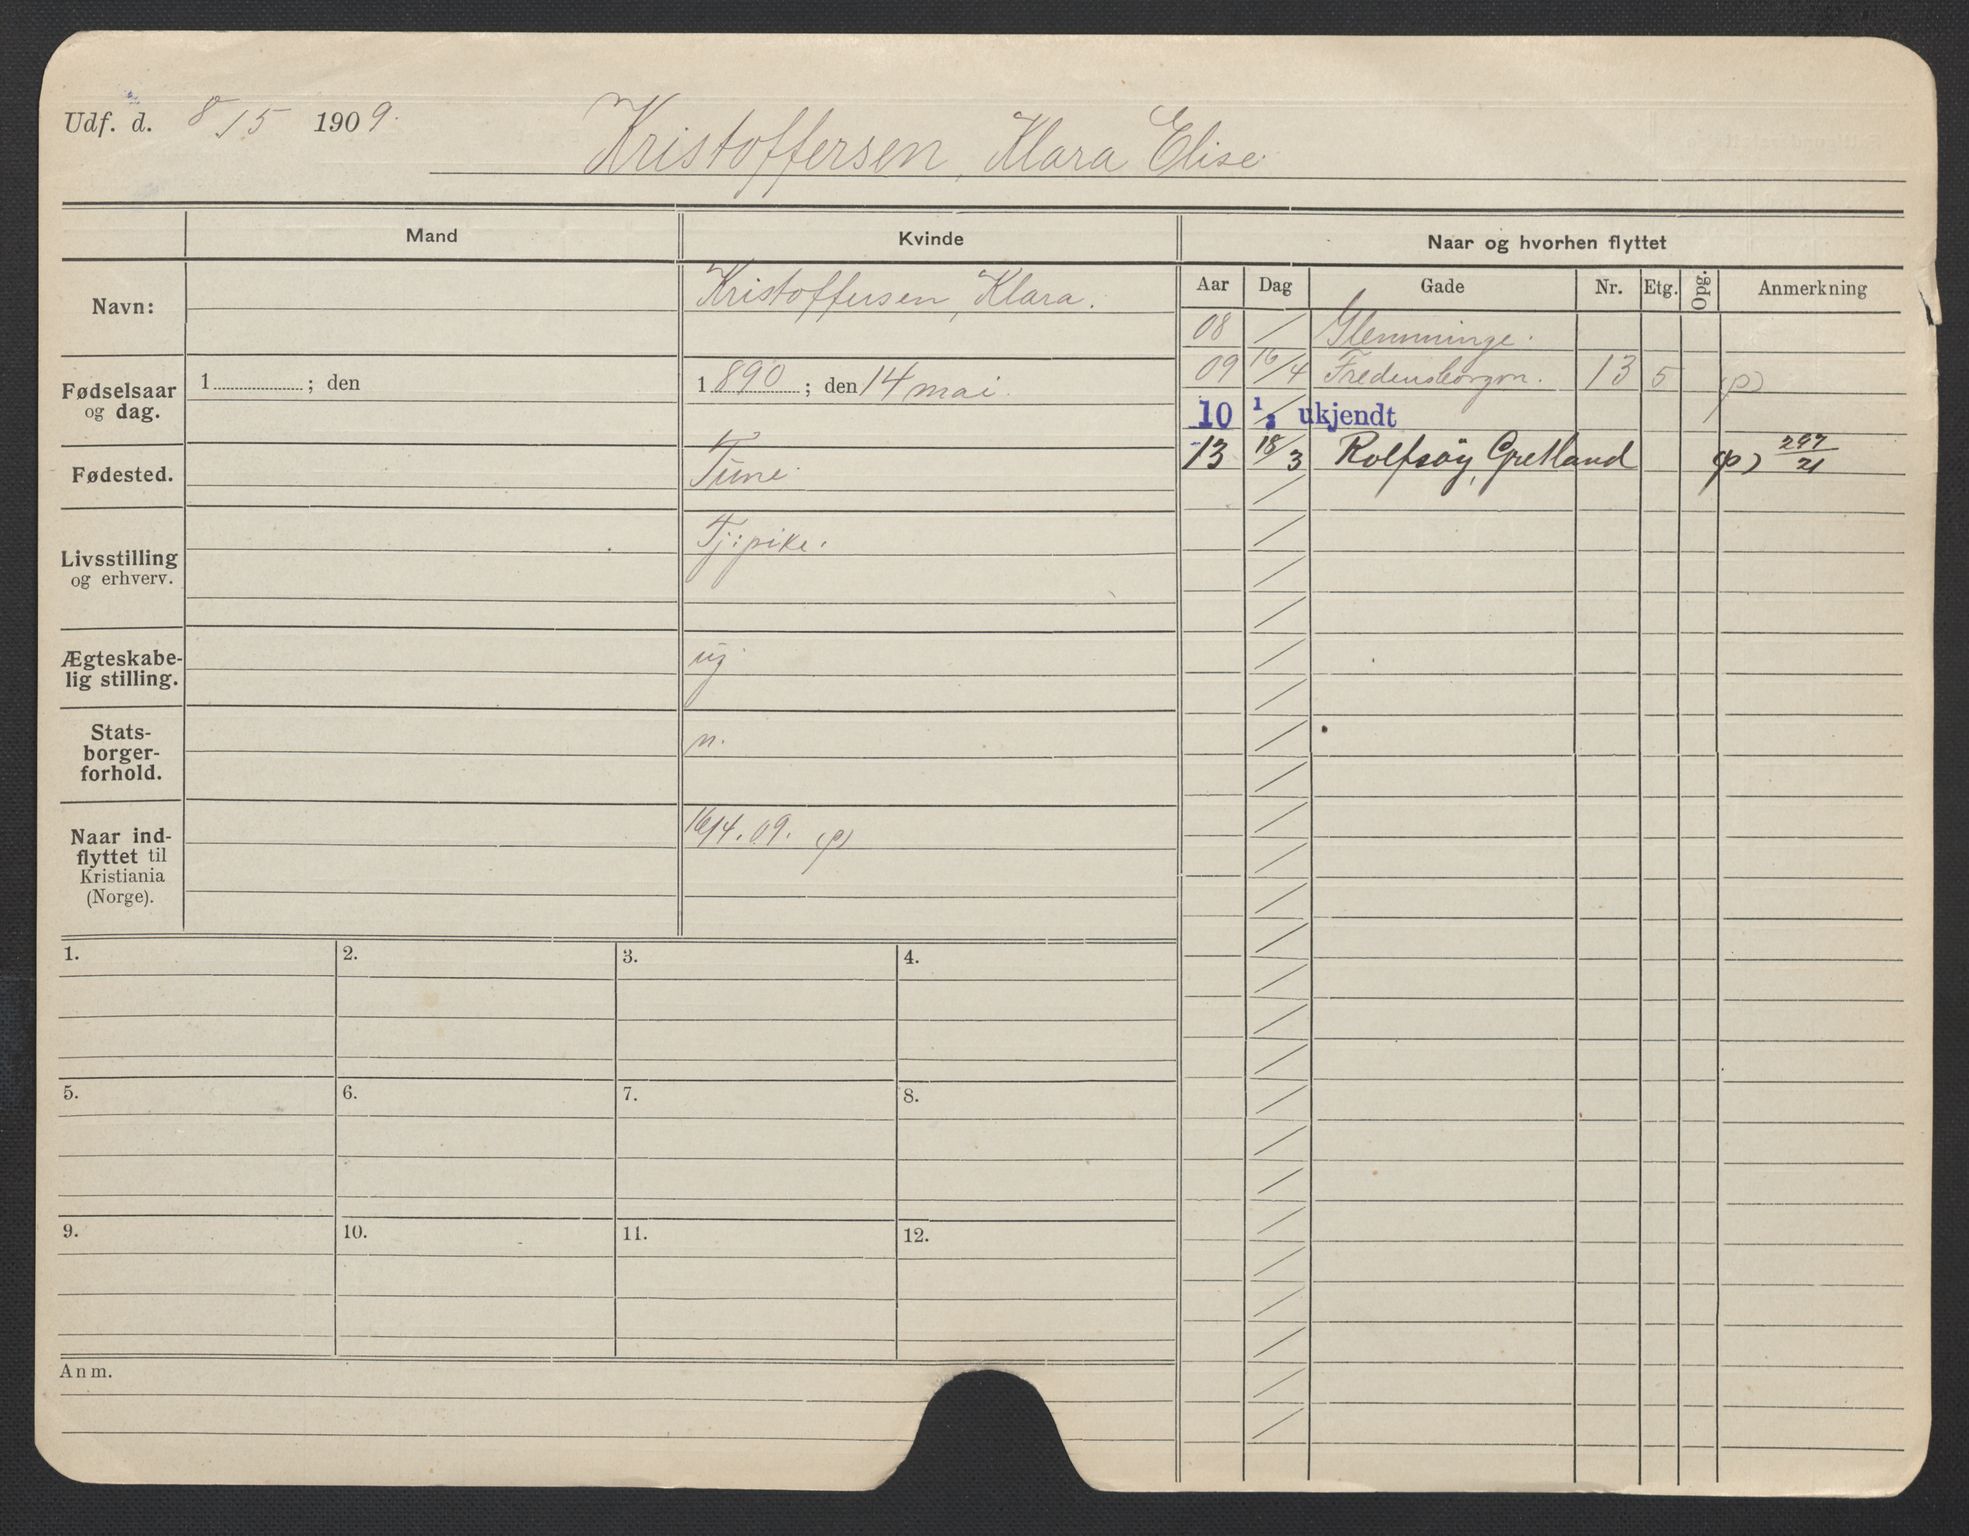 Udf. d. 8/5 1909. Kristoffersen, Klara Elise.
Mand Kvinde Naar og hvorhen flyttet
Aar Dag Gade Nr. Etg. Opg. Anmerkning
Navn: Kristoffersen, Klara.
Fødselsaar og dag. 1 ; den 1890 ; den 14 mai.
Fødested. Tune.
Livsstilling og erhverv. Tj: pike.
Ægteskabe-
lig stilling. ug
Stats-
borger-
forhold. n.
Naar ind-
flyttet til
Kristiania
(Norge). 16/4. 09. (p)
08 / Glemminge.
09 16/4 Fredensborgvn. 13 5 (p)
10 1/2 ukjendt
13 18/3 Rolfsøy, Gretland (p) 297/21
1. 2. 3. 4.
5. 6. 7. 8.
9. 10. 11. 12.
Anm.